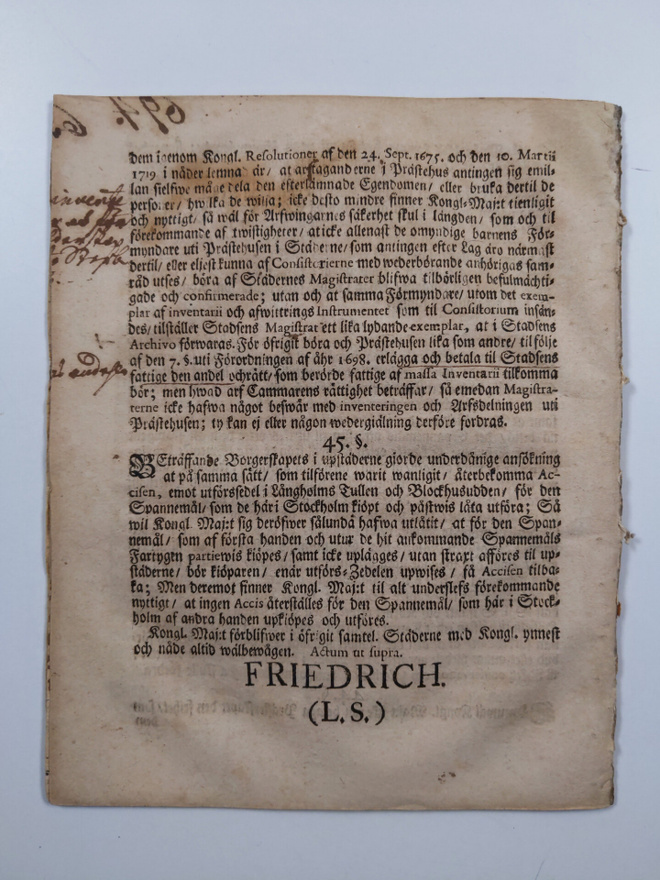 dem igenom Kongl. Resolutioner af den 24. Sept. 1675. och den 10. Martii
1719 i nåder lemnat är/ at arftaganderne i Prästehus antingen sig emil-
lan sielfwe måge dela den efterlämnade Egendomen/ eller bruka dertil de
personer/ hwilka de wilja; icke desto mindre finner Kongl. Maj:t tienligit
och nyttigt/ så wäl för Arfwingarnes säkerhet skul i längden/ som och til
förekommande af twistigheter/ at icke allenast de omyndige barnens För-
myndare uti Prästehusen i Städerne/ som antingen efter Lag äro närmast
dertil/ eller eljest kunna af Consistorierne med wederbörande anhörigas sam-
råd utses/ böra af Städernes Magistrater blifwa tilbörligen befulmächti-
gade och confirmerade; utan och at samma Förmyndare/ utom det exem-
plar af inventarii och afwittrings Instrumentet som til Consistorium insän-
des/ tilställer Stadsens Magistrat ett lika lydande exemplar, at i Stadsens
Archivo förwaras. För öfrigit böra och Prästehusen lika som andre/ til följe
af den 7. §. uti Förordningen af åhr 1698. erlägga och betala til Stadsens
fattige den andel och rätt/ som berörde fattige af massa Inventarii tilkomma
bör; men hwad arf Cammarens rättighet beträffar/ så emedan Magistra-
terne icke hafwa något beswär med inventeringen och Arfsdelningen uti
Prästehusen; ty kan ej eller någon wedergiälning derföre fordras.
45. §.
BEträffande Borgerskapets i upstäderne giorde underdånige ansökning
at på samma sätt/ som tilförene warit wanligit/ återbekomma Ac-
cisen, emot utförssedel i Långholms Tullen och Blockhusudden/ för den
Spannemål/ som de här i Stockholm kiöpt och påstwis låta utföra; Så
wil Kongl. Maj:t sig deröfwer sålunda hafwa utlåtit/ at för den Span-
nemål/ som af första handen och utur de hit ankommande Spannemåls
Fartygen partiewis kiöpes/ samt icke uplägges/ utan straxt afföres til up-
städerne/ bör kiöparen/ enär utförs-Zedelen upwises/ få Accisen tilba-
ka; Men deremot finner Kongl. Maj:t til alt underslefs förekommande
nyttigt/ at ingen Accis återställes för den Spannemål/ som här i Stock-
holm af andra handen upkiöpes och utföres.
Kongl. Maj:t förblifwer i öfrigit samtel. Städerne med Kongl. ynnest
och nåde altid wälbewågen. Actum ut supra.
FRIEDRICH.
(L.S.)